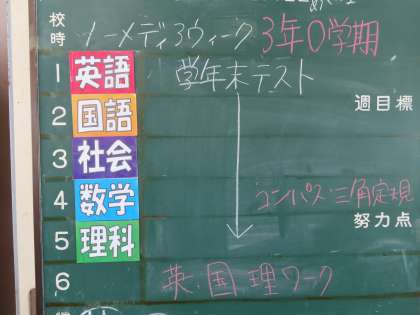 校時 ノーメディアウィーク 3年0学期
1 英語 学年末テスト
2 国語 週目標
3 社会
4 数学 コンパス 三角定規
努力点
5 理科
6 英・国 理ワーク